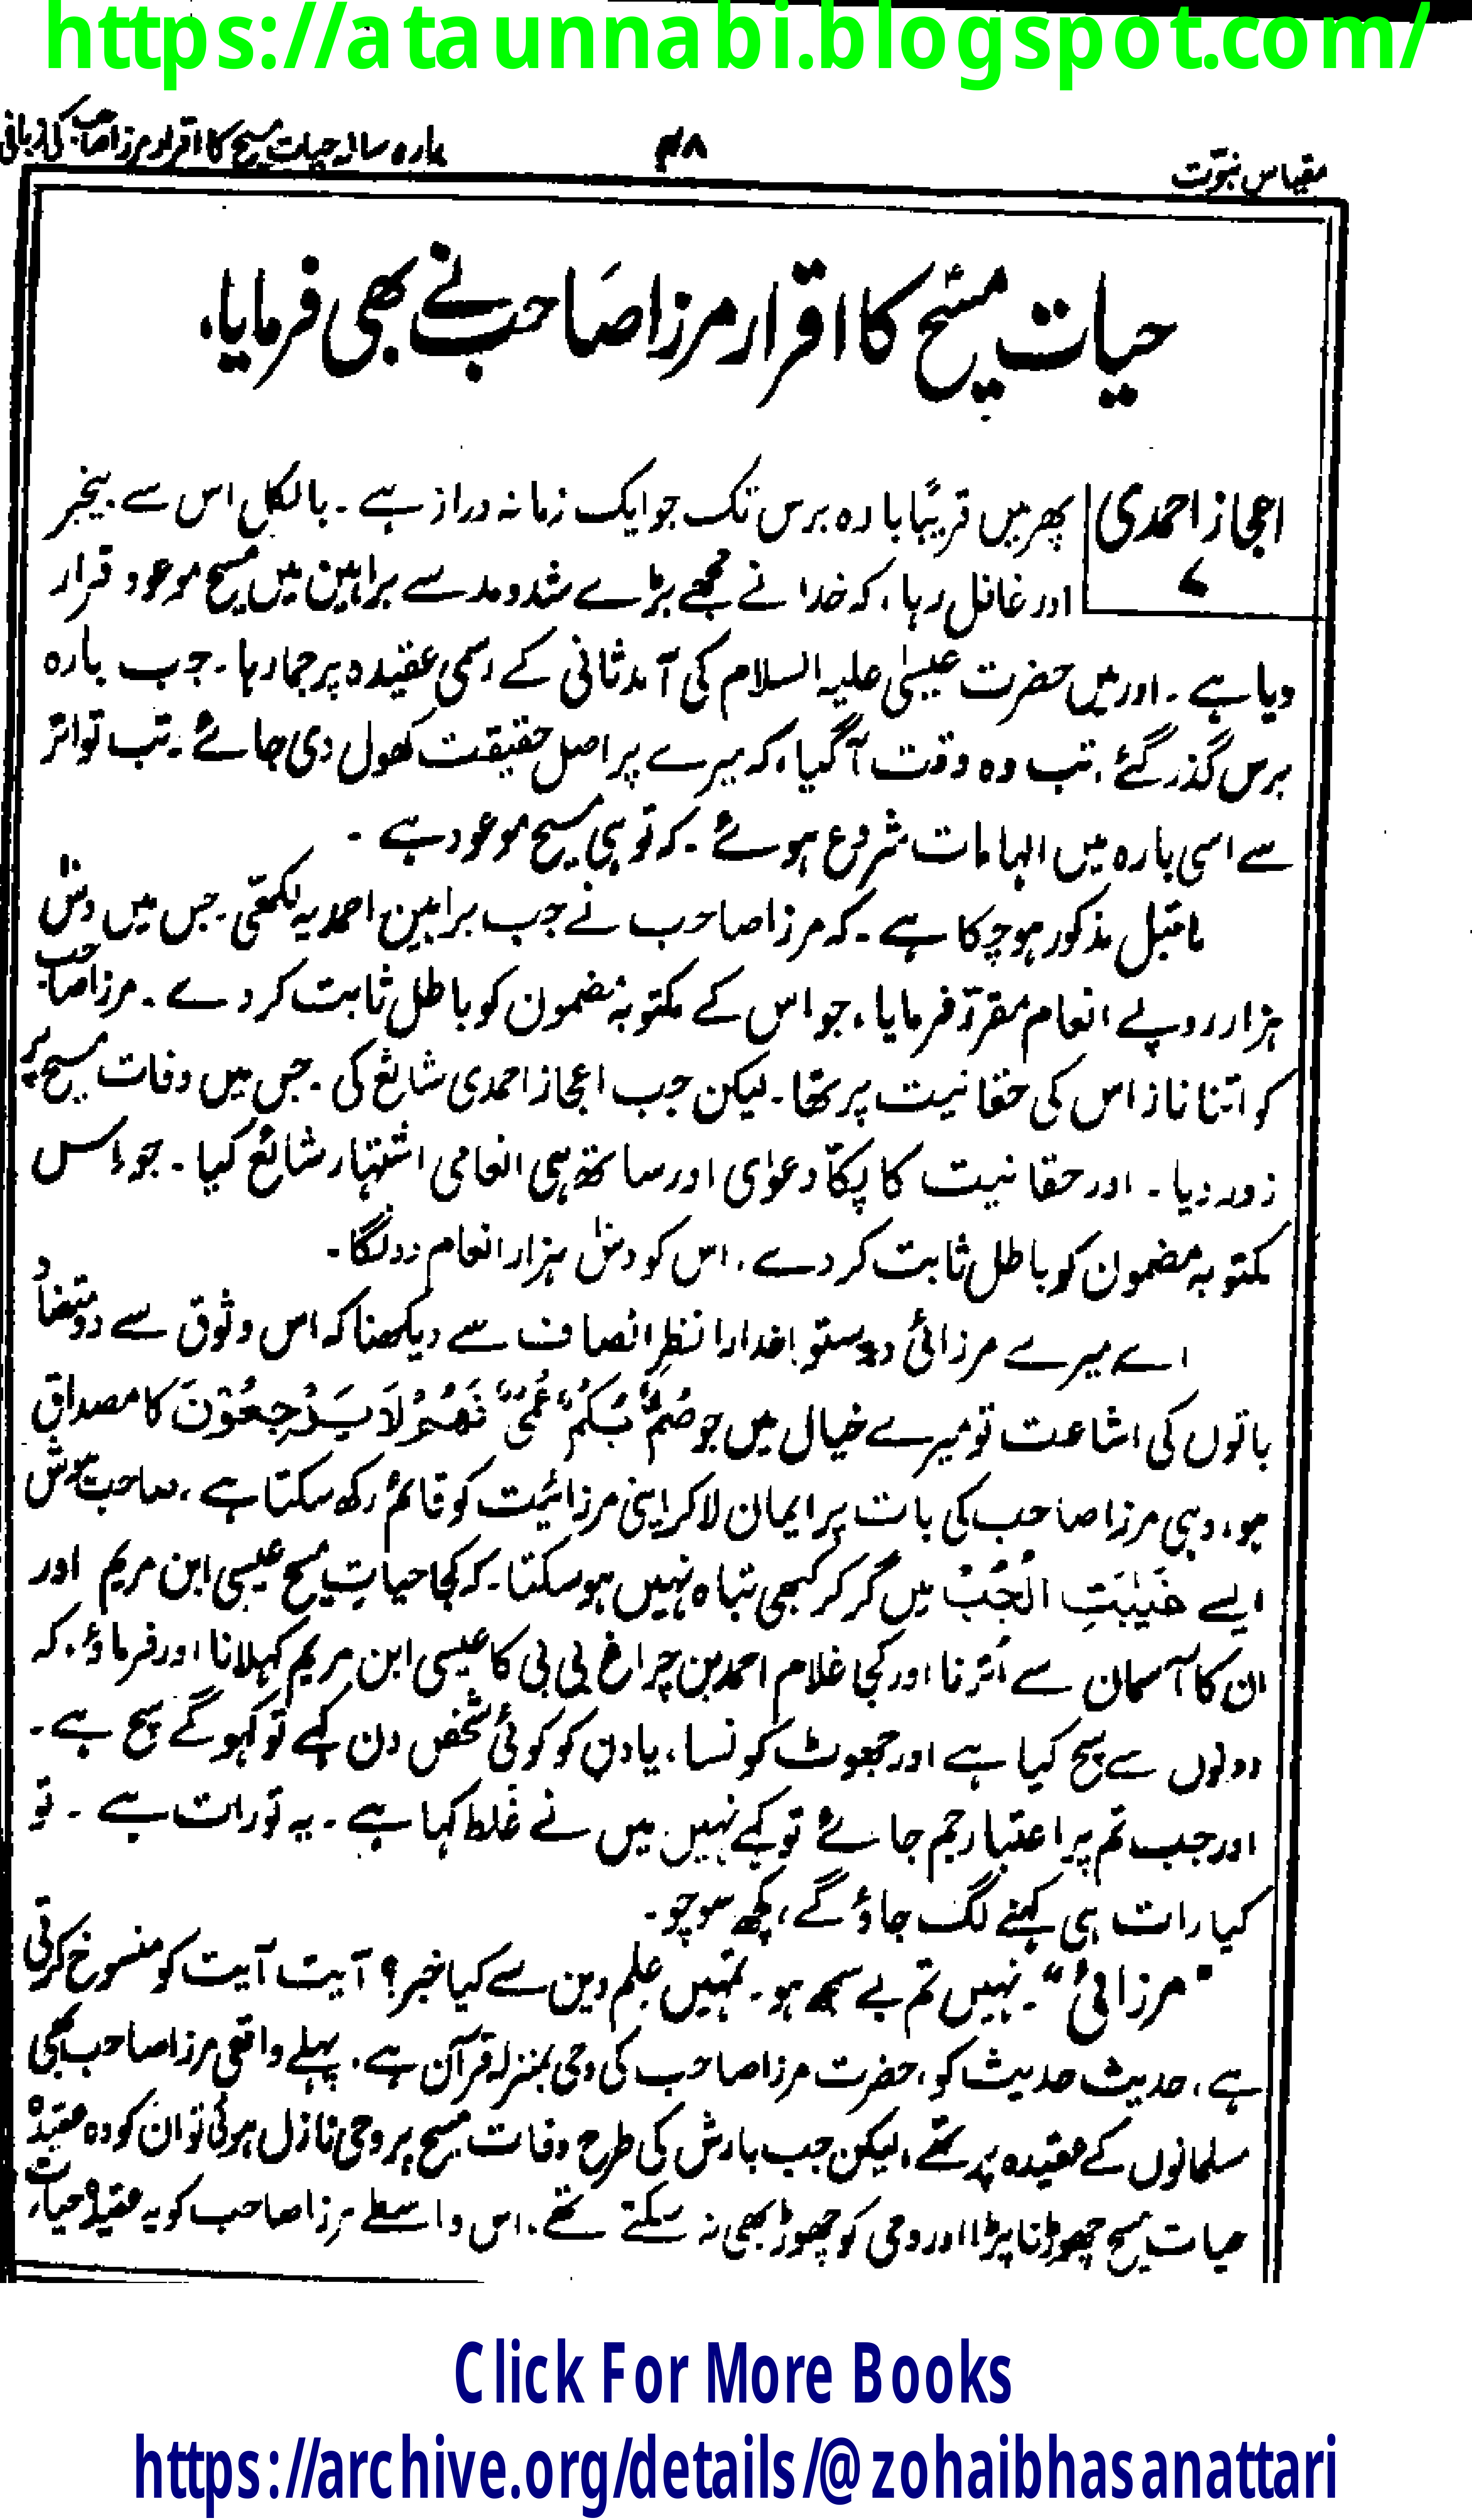 https://ataunnabi.blogspot.com/
مقیاس نبوّت
۴۸
بارہ سالہ حیات مسیح کا اقرار مرزا صاحب کی زبانی
حیاتِ مسیح کا اقرار مرزا صاحب نے بھی فرمایا۔
اعجاز احمدی
۷
پھر میں قریبًا بارہ برس تک جو ایک زمانہ دراز ہے ۔ بالکل اس سے بیخبر
اور غافل رہا ، کہ خدا نے مجھے بڑے شد و مد سے براہین میں مسیح موعود قرار
دیا ہے ۔ اور میں حضرت عیسیٰ علیہ السلام کی آمد ثانی کے رسمی عقیدہ پر جما رہا ۔ جب بارہ
برس گذر گئے ، تب وہ وقت آ گیا ، کہ میرے پر اصل حقیقت کھول دی جائے ۔ تب تواتر
سے اسی بارہ میں الہامات شروع ہوئے ۔ کہ تو ہی مسیح موعود ہے ۔
ماقبل مذکور ہو چکا ہے ۔ کہ مرزا صاحب نے جب براہین احمدیہ لکھی ۔ جس میں دس
ہزار روپے انعام مقرر فرمایا ، جو اس کے مکتوبہ مضمون کو باطل ثابت کر دے ۔ مرزا صاحب
کو اتنا ناز اس کی حقانیت پر تھا ۔ لیکن جب اعجاز احمدی شائع کی ۔ جس میں وفات مسیح پر
زور دیا ۔ اور حقانیت کا پکّا دعوٰی اور ساتھ ہی انعامی اشتہار شائع کیا ۔ جو اس
مکتوبہ مضمون کو باطل ثابت کر دے ، اس کو دس ہزار انعام دونگا ۔
اے میرے مرزائی دوستو! خدارا نظرِ انصاف سے دیکھنا کہ اس وثوق سے دو متضاد
باتوں کی اشاعت تو میرے خیال میں جو صُمٌّ بُكْمٌ عُمْيٌ فَهُمْ لَا يَرْجِعُوْنَ کا مصداق
ہو ، وہی مرزا صاحب کی بات پر ایمان لا کر اپنی مرزائیت کو قائم رکھ سکتا ہے ، صاحب ہوش
ایسے غَيٰبَتِ الْجُبِّ میں گر کر کبھی تباہ نہیں ہو سکتا ۔ کہ کجا حیاتِ مسیح عیسی ابن مریم اور
ان کا آسمان سے اُترنا اور کجا غلام احمد بن چراغ بی بی کا عیسی ابن مریم کہلانا اور فرماؤ ، کہ
دونوں سے سچ کیا ہے اور جھوٹ کونسا ، یا دن کو کوئی شخص دن کہے تو کہو گے سچ ہے ۔
اور جب تم پر اعتبار جم جائے تو کہے نہیں میں نے غلط کہا ہے ۔ یہ تو رات ہے ۔ تو
کیا رات ہی کہنے لگ جاؤ گے ، کچھ سوچو ۔
"مرزائی" ۔ نہیں تم بے سمجھ ہو ۔ تمہیں علم دین سے کیا خبر؟ آیت آیت کو منسوخ کرتی
ہے ، حدیث حدیث کو ، حضرت مرزا صاحب کی وحی بمنزلہ قرآن ہے ، پہلے واقعی مرزا صاحب بھی
مسلمانوں کے عقیدہ پر تھے ، لیکن جب بارش کی طرح وفات مسیح پر وحی نازل ہوئی تو ان کو وہ عقیدہ
حیات مسیح چھوڑنا پڑا اور وحی کو چھوڑ بھی نہ سکتے تھے ، اس واسطے مرزا صاحب کو یہ عقیدہ حیات
Click For More Books
https://archive.org/details/@zohaibhasanattari